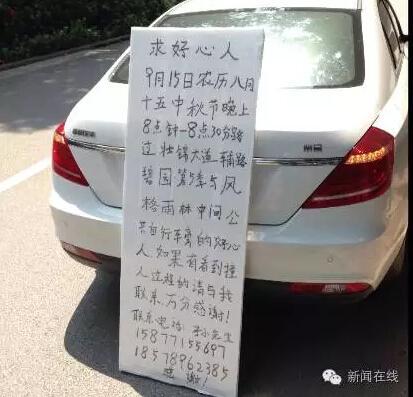 求好心人
9月15日农历八月
十五中秋节晚上
8点钟-8点30分路
过壮锦大道辅路
碧园第5季与风
格雨林中间公
共自行车旁的好心
人如果有看到撞
人过程的请与我
联系万分感谢!
联系电话 李先生
15877155697
18578962385
感谢!
新闻在线